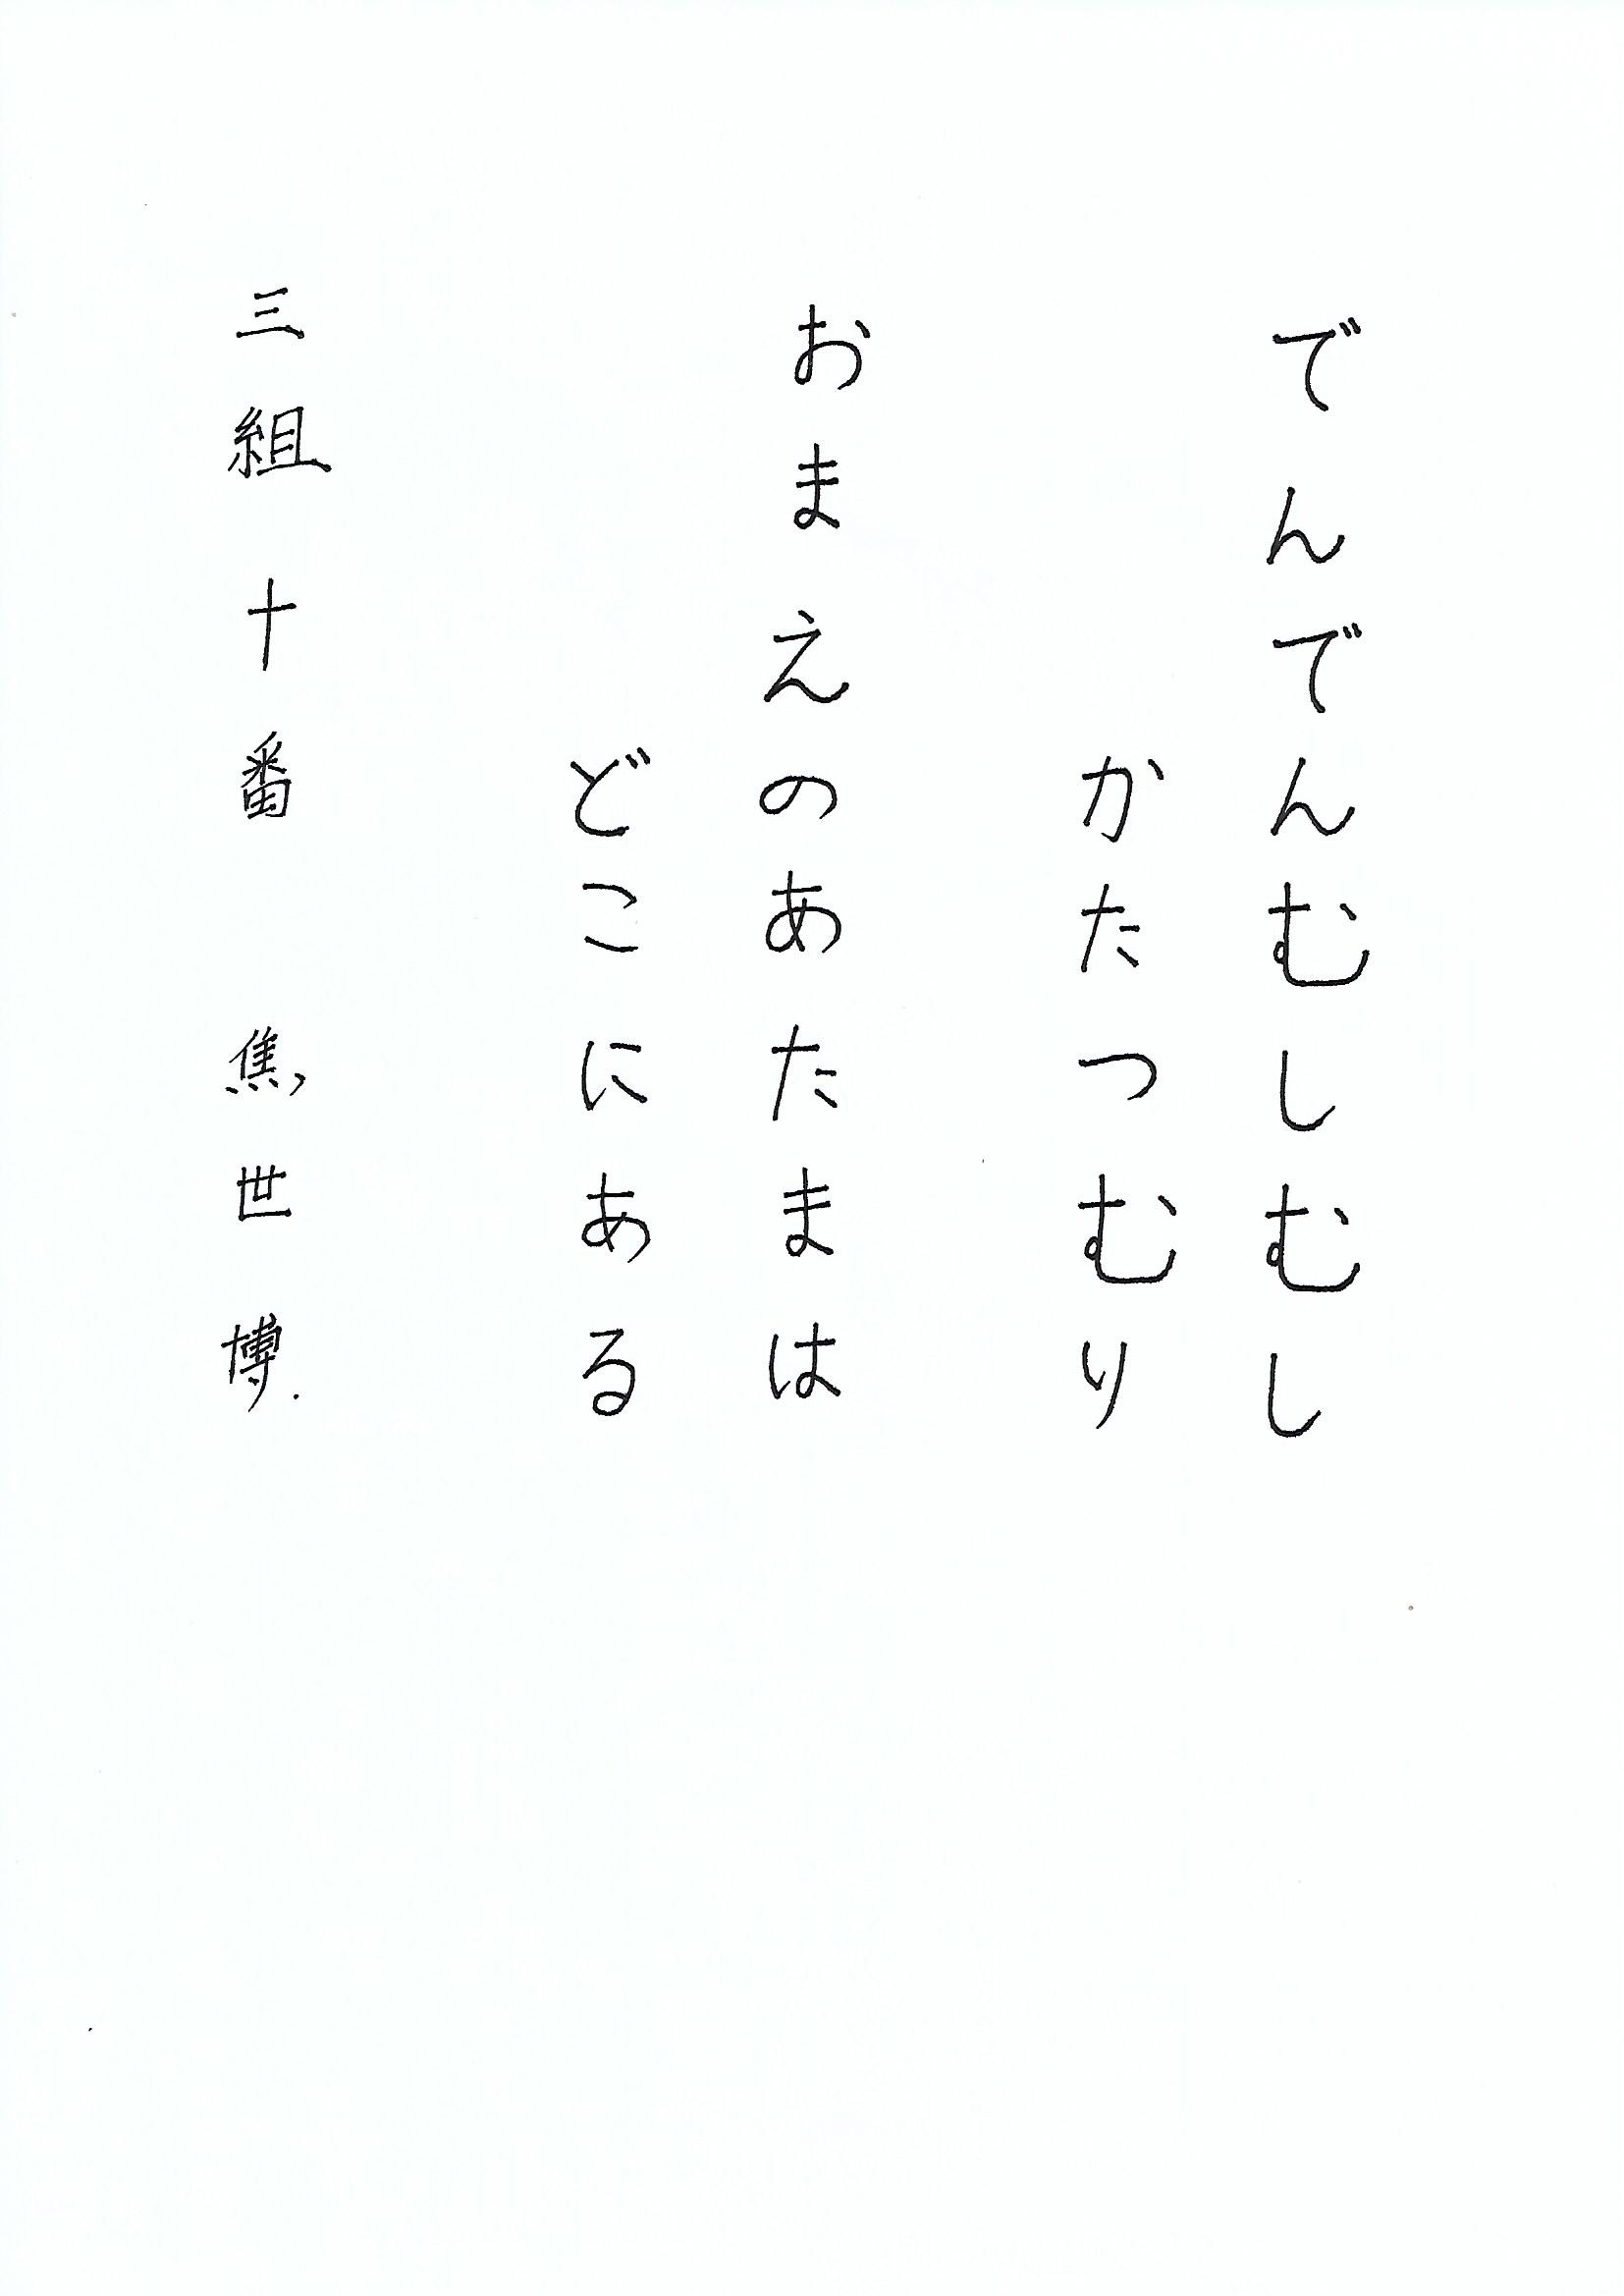 でんでんむしむし
かたつむり
おまえのあたまは
どこにある
三組十番 焦世博.